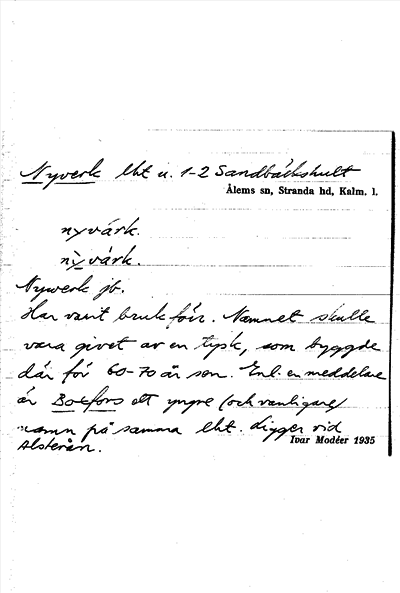 Nyverk lht u. 1-2 Sandbäckshult
Ålems sn, Stranda hd, Kalm. l.
nyvárk.
nỳvárk.
Nywerk jb.
Har varit bruk förr. Namnet skulle
vara givet av en tysk, som byggde
där för 60-70 år sen. Enl. en meddelare
är Boxfors ett yngre (och vanligare)
namn på samma lht. Ligger vid
Alsterån.
Ivar Modéer 1935